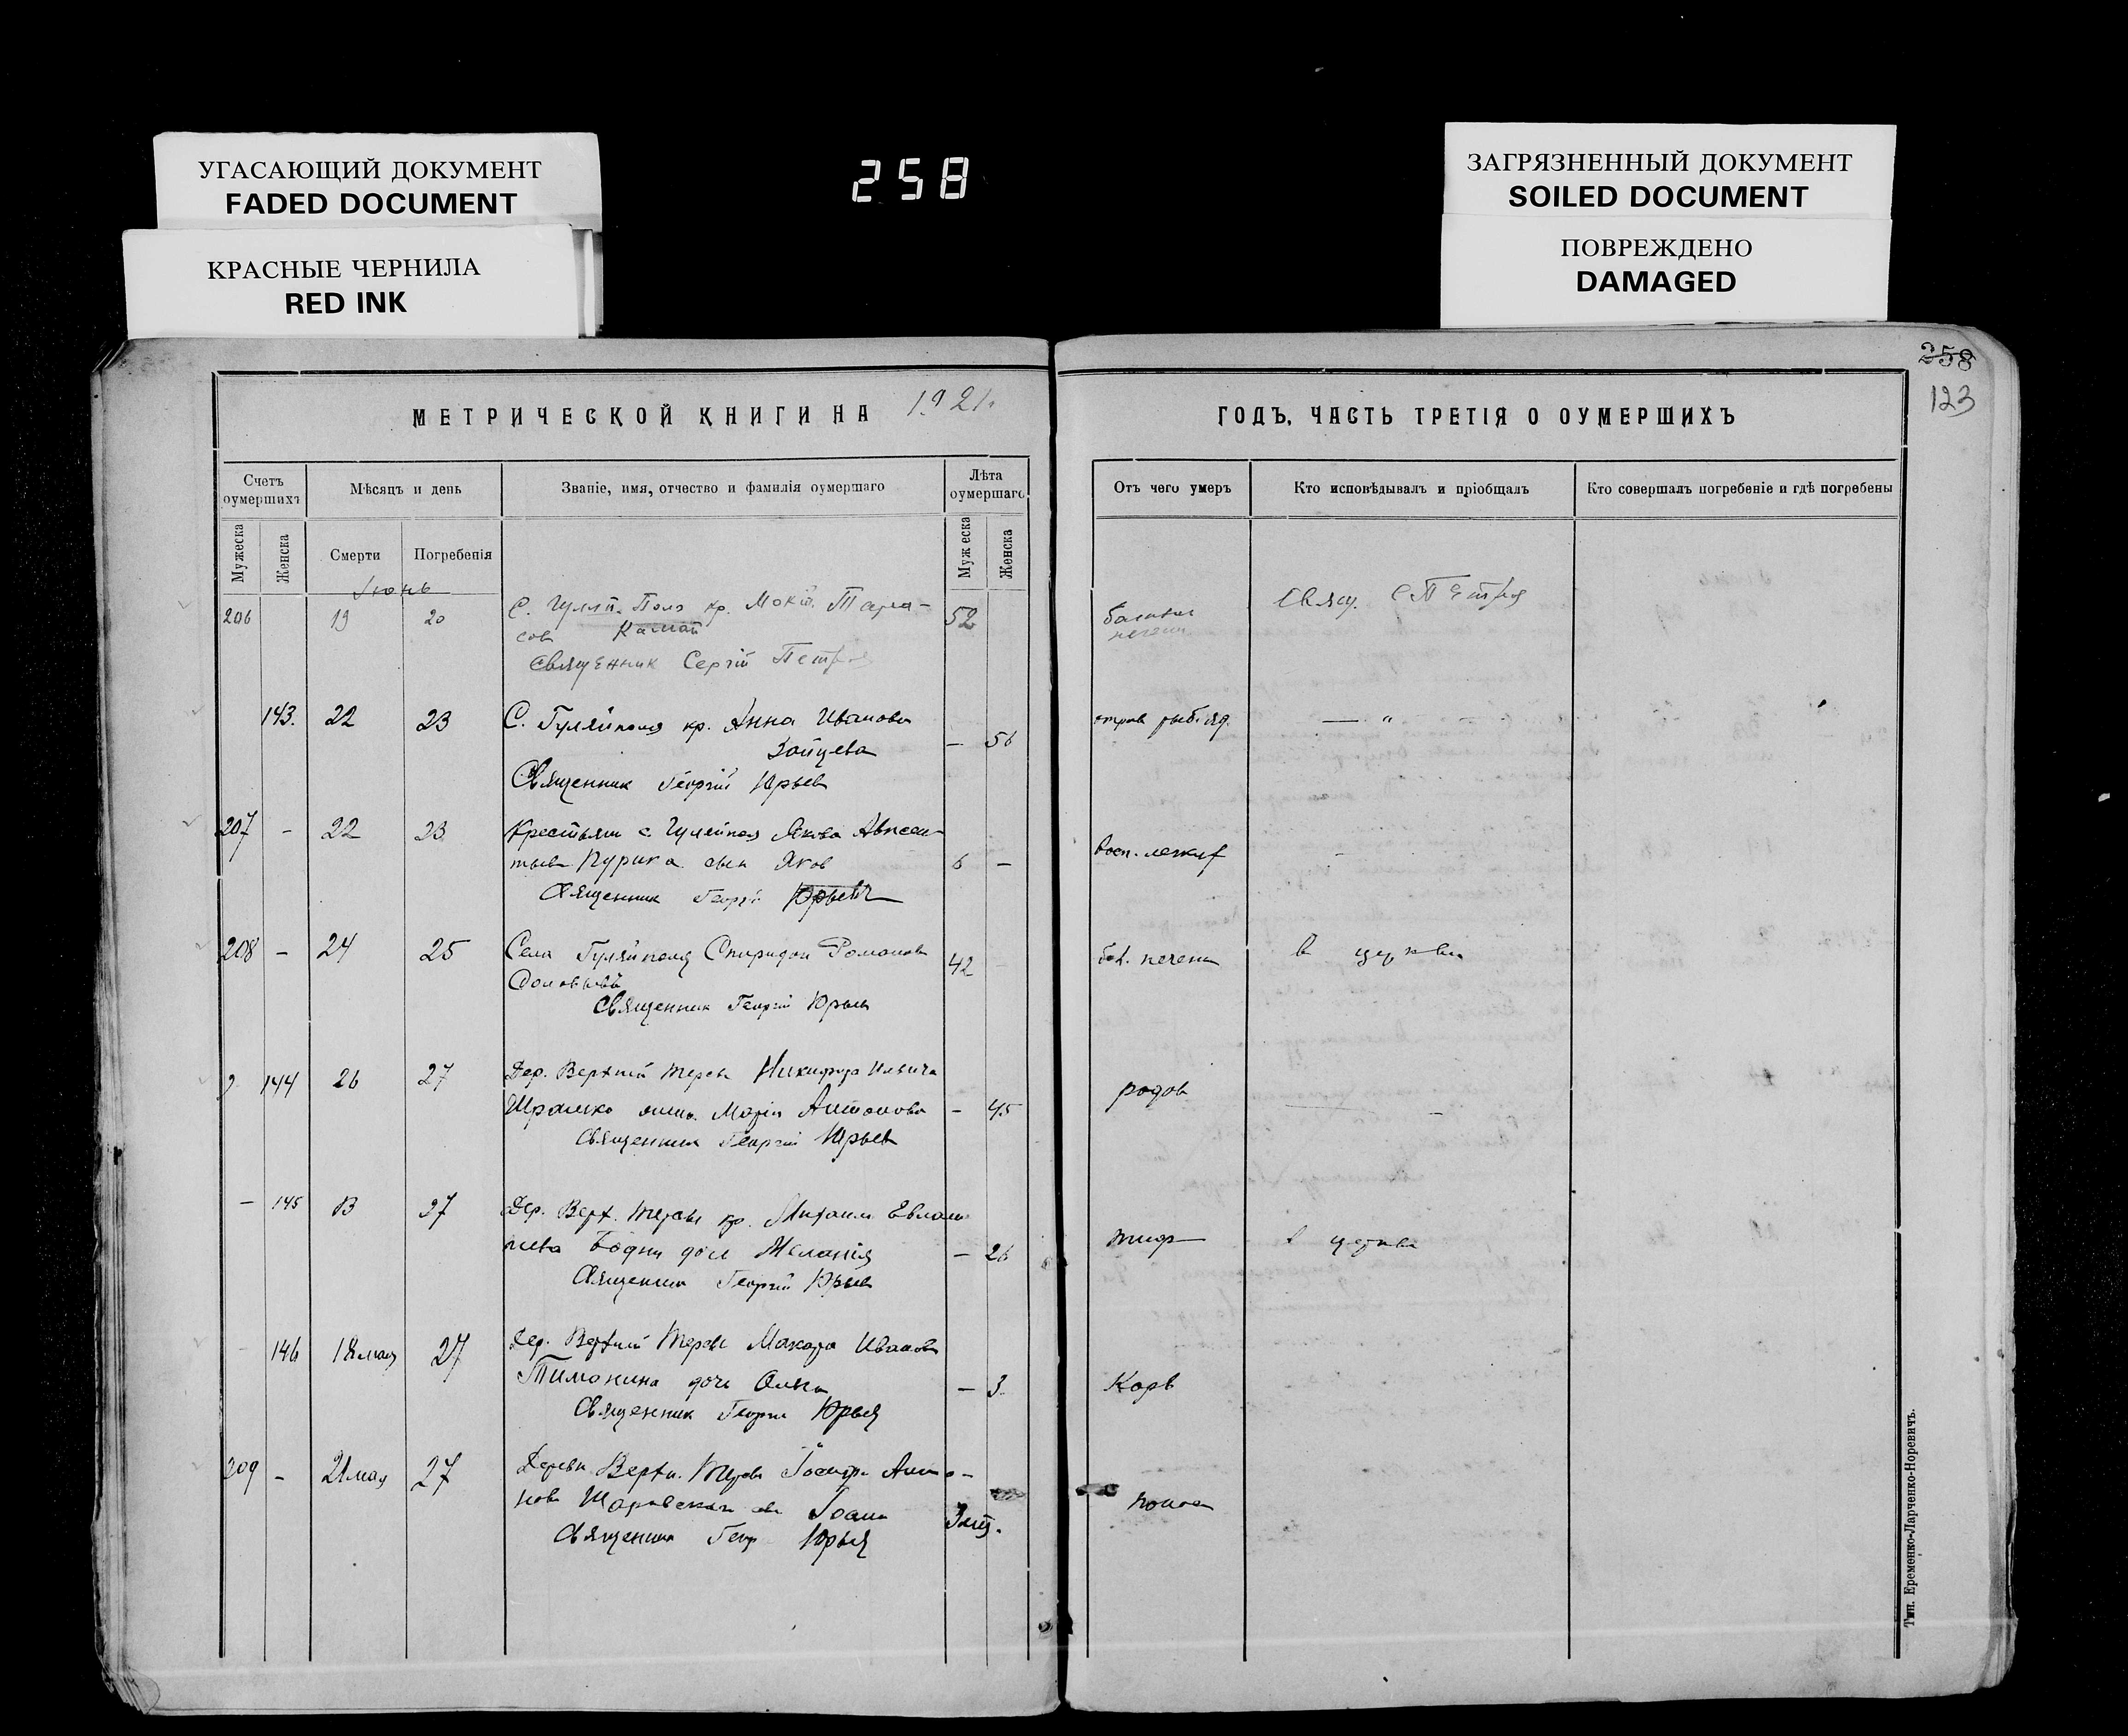 УГАСАЮЩИЙ ДОКУМЕНТ
FADED DOCUMENT
КРАСНЫЕ ЧЕРНИЛА
RED INK
258
ЗАГРЯЗНЕННЫЙ ДОКУМЕНТ
SOILED DOCUMENT
ПОВРЕЖДЕНО
DAMAGED
258
123
МЕТРИЧЕСКОЙ КНИГИ НА 1921.
ГОДЪ, ЧАСТЬ ТРЕТІЯ О ОУМЕРШИХЪ
Счетъ оумершихъ
Мѣсяцъ и день
Званіе, имя, отчество и фамилія оумершаго
Лѣта оумершаго
Отъ чего умеръ
Кто исповѣдывалъ и пріобщалъ
Кто совершалъ погребеніе и гдѣ погребены
Мужеска
Женска
Смерти
Погребенія
Мужеска
Женска
Іюнь
206 19 20 С. Гуляй-Поле кр. Тара-
52
сов
Священник Сергій Петров
143. 22 23 С. Гуляйполя кр. Анна Иванова
Зайцева — 56
отрав. рыб. яд. — "
Священник Георгій Юрьев
207 - 22 23 Крестьян с. Гуляйполя Якова Авксен-
тьев Пурика сын Яков 6 —
восп. легких
Священник Георгій Юрьев
208 - 24 25 Села Гуляйполя Спиридон Романов
42 бол. печени в церкви
Священник Георгій Юрьев
144 26 27 Дер. Верхній Терсы Никифора Ильича
Шрамко жена Марія Антонова — 45
родов
Священник Георгій Юрьев
— 145 27 Дер. Верх. Терсы кр. Михаил Евлам-
піева Бодни доч Меланія — 26
тиф в церкви
Священник Георгій Юрьев
146 18 мая 27 Дер. Верхній Терсы Макара Иванов
Тимохина дочь Ольга — 3.
Корь
Священник Георгій Юрьев
209 - 21 мая 27 Деревн. Верхн. Терсы Анто-
нова Іоанн 3 мѣс.
понос
Священник Геор Юрьев
Тип. Еременко-Ларченко-Норевичъ.